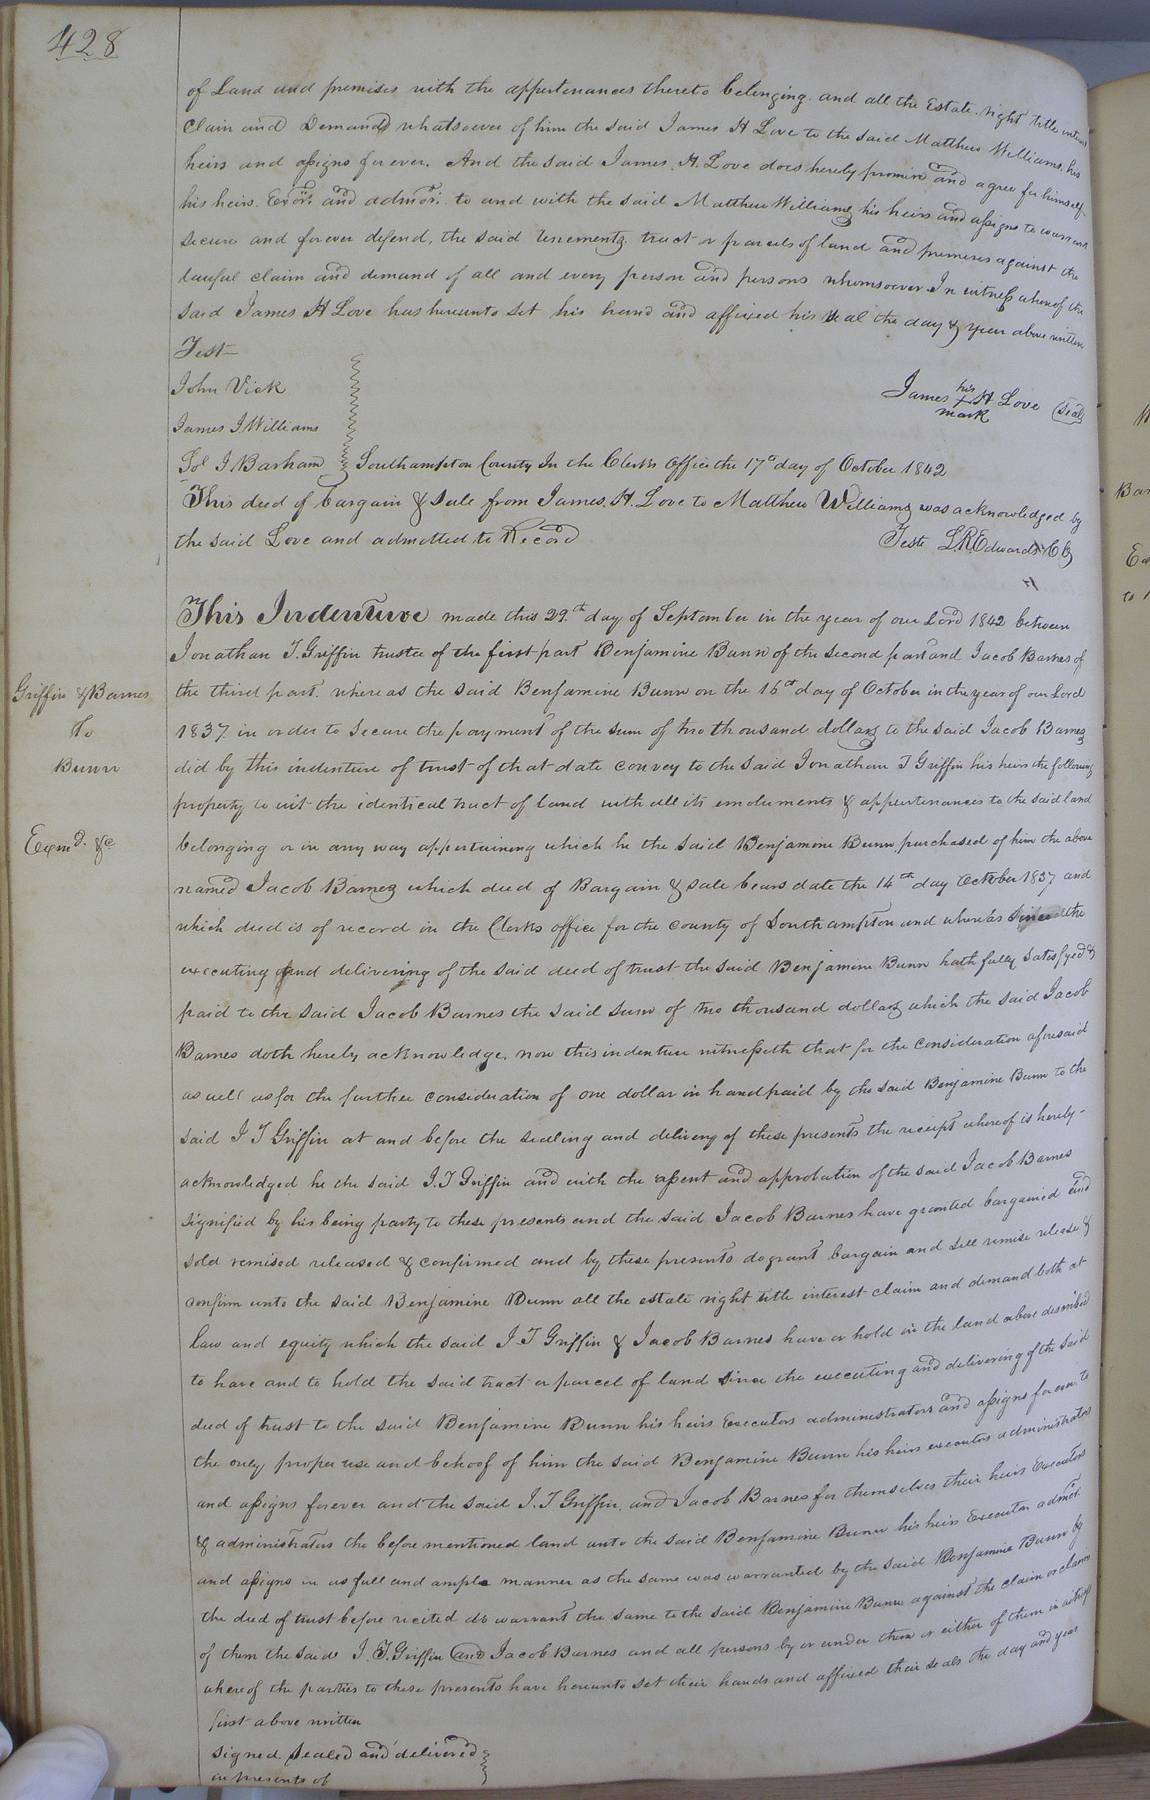 428
of Land and premises with the appertenances thereto belonging and all the Estate right title interest
Claim and Demands whatsoever of him the said James H Love to the said Matthew Williams, his
heirs and assigns forever. And the said James. H. Love does hereby promise and agree for himself
his heirs. Exors. and admors. to and with the said Matthew Williams his heirs and assigns to warrant
secure and forever defend, the said tenements tract or parcels of land and premises against the
lawful claim and demand of all and every person and persons whomsoever In witness whereof the
said James H Love has hereunto set his hand and affixed his seal the day & year above written
Test
John Vick
James J Williams
James his + mark H Love Seal
Sol J Barham Southampton County In the Clerks Office the 17th day of October 1842
This deed of bargain & sale from James. H. Love to Matthew Williams was acknowledged by
the said Love and admitted to Record Teste L.R. Edwards CC
This Indenture made this 29th day of September in the year of our Lord 1842 between
Jonathan T. Griffin trustee of the first part Benjamine Bunn of the second part and Jacob Barnes of
Griffin & Barnes
To
Bunn
Exmd. &c
the third part. whereas the said Benjamine Bunn on the 16th day of October in the year of our Lord
1837 in order to secure the payment of the sum of two thousand dollars to the said Jacob Barnes
did by this indenture of trust of that date convey to the said Jonathan T Griffin his heirs the following
property to wit the identical tract of land with all its emoluments & appurtenances to the said land
belonging or in any way appertaining which he the said Benjamine Bunn purchased of him the above
named Jacob Barnes which deed of Bargain & sale bears date the 14th day October 1837 and
which deed is of record in the Clerks office for the county of Southampton and whereas since the
executing and delivering of the said deed of trust the said Benjamine Bunn hath fully satisfyed &
paid to the said Jacob Barnes the said sum of two thousand dollars which the said Jacob
Barnes doth hereby acknowledge. now this indenture witnesseth that for the consideration aforesaid
as well as for the further consideration of one dollar in hand paid by the said Benjamine Bunn to the
said J T Griffin at and before the sealing and delivery of these presents the receipt whereof is hereby-
acknowledged he the said J. T Griffin and with the assent and approbation of the said Jacob Barnes
signified by his being party to these presents and the said Jacob Barnes have granted bargained and
sold remised released & confirmed and by these presents do grant bargain and sell remise release &
confirm unto the said Benjamine Bunn all the estate right title interest claim and demand both at
law and equity which the said J. T Griffin & Jacob Barnes have or hold in the land above described
to have and to hold the said tract or parcel of land since the executing and delivering of the said
deed of trust to the said Benjamine Bunn his heirs Executors administrators and assigns forever to
the only proper use and behoof of him the said Benjamine Bunn his heirs executors administrators
and assigns forever and the said J. T Griffin. and Jacob Barnes for themselves their heirs Executors
& administrators the before mentioned land unto the said Benjamine Bunn his heirs Executors admrs.
and assigns in as full and ample manner as the same was warranted by the said Benjamine Bunn by
the deed of trust before recited do warrant the same to the said Benjamine Bunn against the claim or claims
of them the said J. T. Griffin and Jacob Barnes and all persons by or under them or either of them in witness
whereof the parties to these presents have hereunto set their hands and affixed their seals the day and year
first above written
Signed Sealed and delivered
in presents of